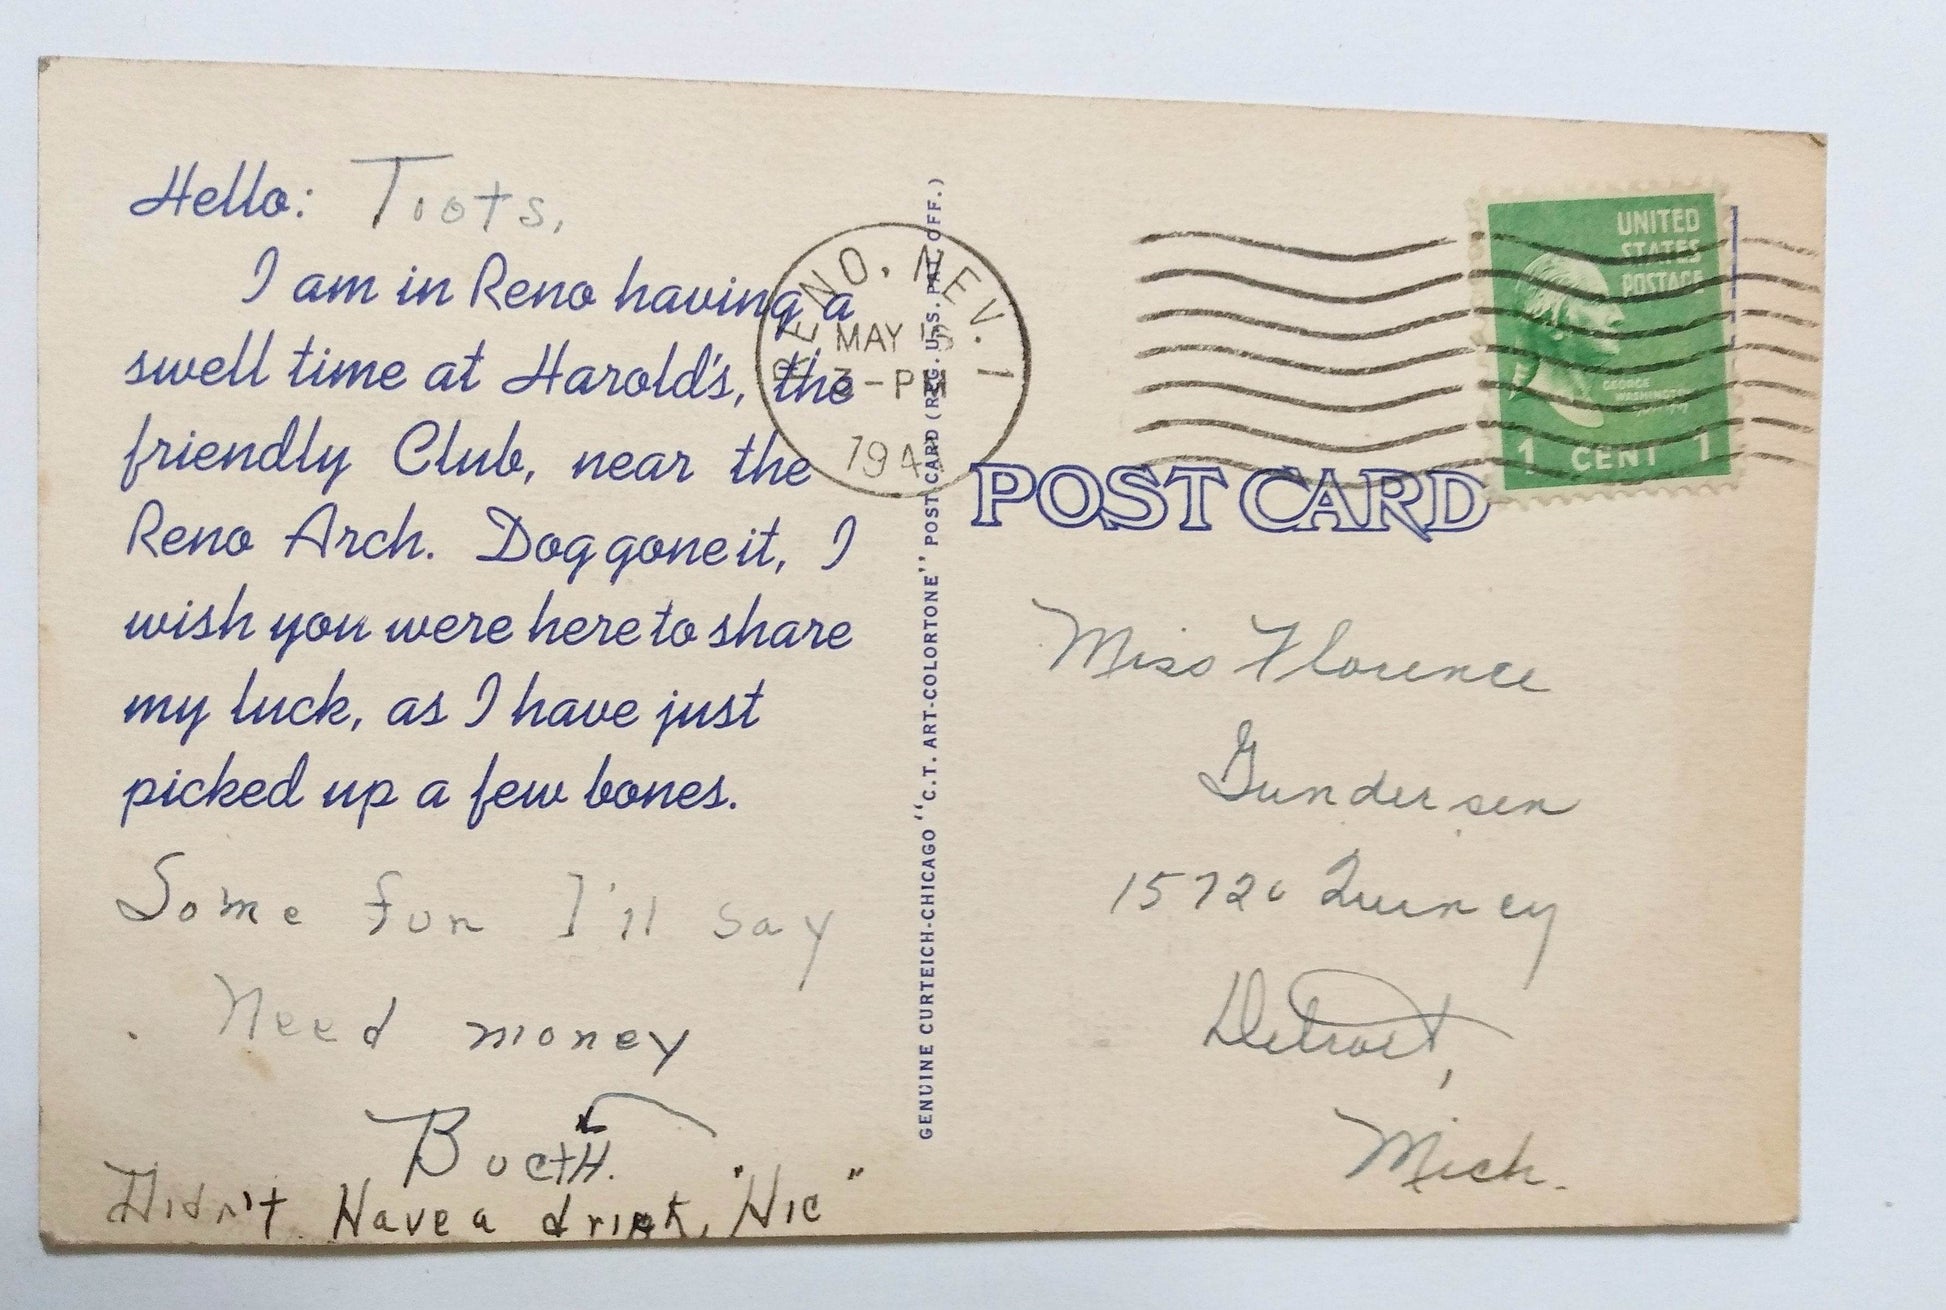 Hello: Toots,
I am in Reno having a
swell time at Harold's, the
friendly Club, near the
Reno Arch. Dog gone it, I
wish you were here to share
my luck, as I have just
picked up a few bones.
Some fun I'll say
Need money
Didn't Have a drink, "Hic"
GENUINE CURTEICH-CHICAGO "C.T. ART-COLORTONE" POST CARD (REG. U.S. PAT. OFF.)
RENO, NEV. 1
MAY
3-PM
194
UNITED
STATES
POSTAGE
GEORGE
WASHINGTON
1 CENT 1
POST CARD
Miss Florence
Gundersen
15720 Quincy
Detroit,
Mich.